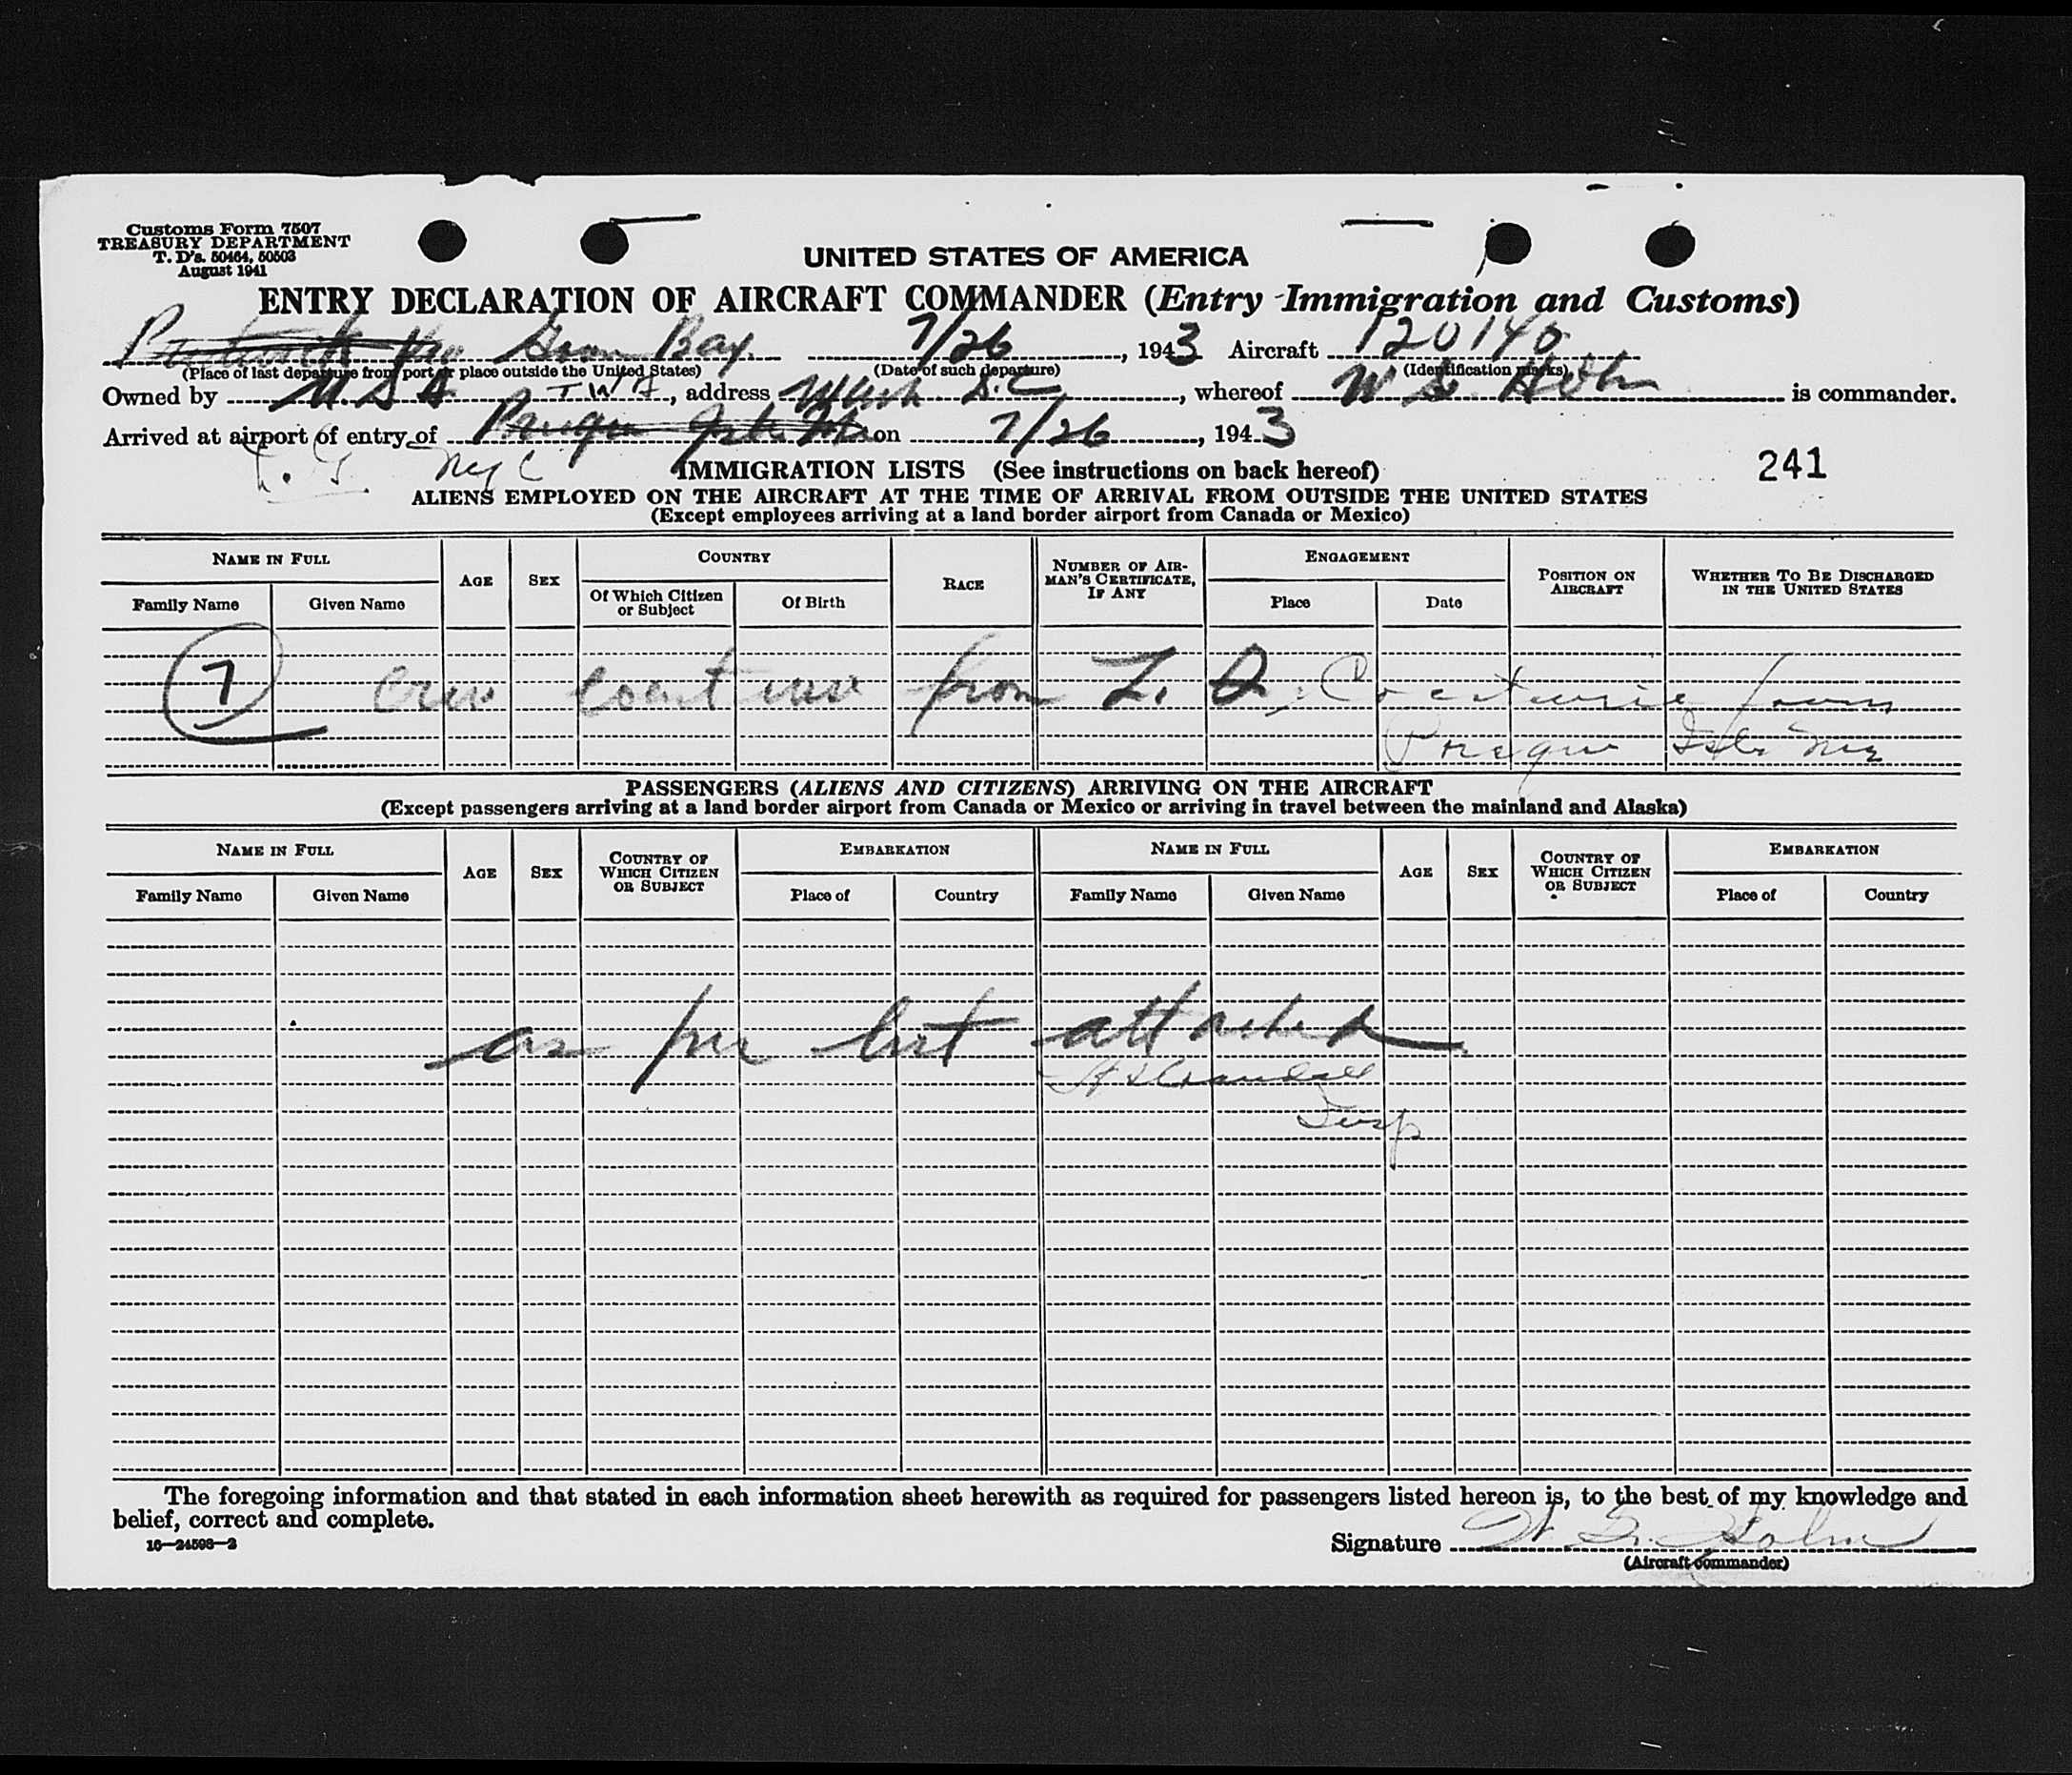 Customs Form 7507
TREASURY DEPARTMENT
T. D's. 50464, 50503
August 1941
UNITED STATES OF AMERICA
ENTRY DECLARATION OF AIRCRAFT COMMANDER (Entry Immigration and Customs)
Goose Bay 7/26, 1943 Aircraft 120140
(Place of last departure from port or place outside the United States) (Date of such departure) (Identification marks)
Owned by U.S.A. T W A, address Wash D.C., whereof W G Holm is commander.
Arrived at airport of entry of Presque Isle on 7/26, 1943
L. G. NYC
IMMIGRATION LISTS (See instructions on back hereof) 241
ALIENS EMPLOYED ON THE AIRCRAFT AT THE TIME OF ARRIVAL FROM OUTSIDE THE UNITED STATES
(Except employees arriving at a land border airport from Canada or Mexico)
NAME IN FULL AGE SEX COUNTRY RACE NUMBER OF AIRMAN'S CERTIFICATE, IF ANY ENGAGEMENT POSITION ON AIRCRAFT WHETHER TO BE DISCHARGED IN THE UNITED STATES
Family Name Given Name Of Which Citizen or Subject Of Birth Place Date
7 Crew Coastwise from L. G., Coastwise from
Presque Isle Me
PASSENGERS (ALIENS AND CITIZENS) ARRIVING ON THE AIRCRAFT
(Except passengers arriving at a land border airport from Canada or Mexico or arriving in travel between the mainland and Alaska)
NAME IN FULL AGE SEX COUNTRY OF WHICH CITIZEN OR SUBJECT EMBARKATION NAME IN FULL AGE SEX COUNTRY OF WHICH CITIZEN OR SUBJECT EMBARKATION
Family Name Given Name Place of Country Family Name Given Name Place of Country
as per list attached
Crandall
Insp
The foregoing information and that stated in each information sheet herewith as required for passengers listed hereon is, to the best of my knowledge and
belief, correct and complete.
16—24598-2
Signature W. G. Holm
(Aircraft commander)